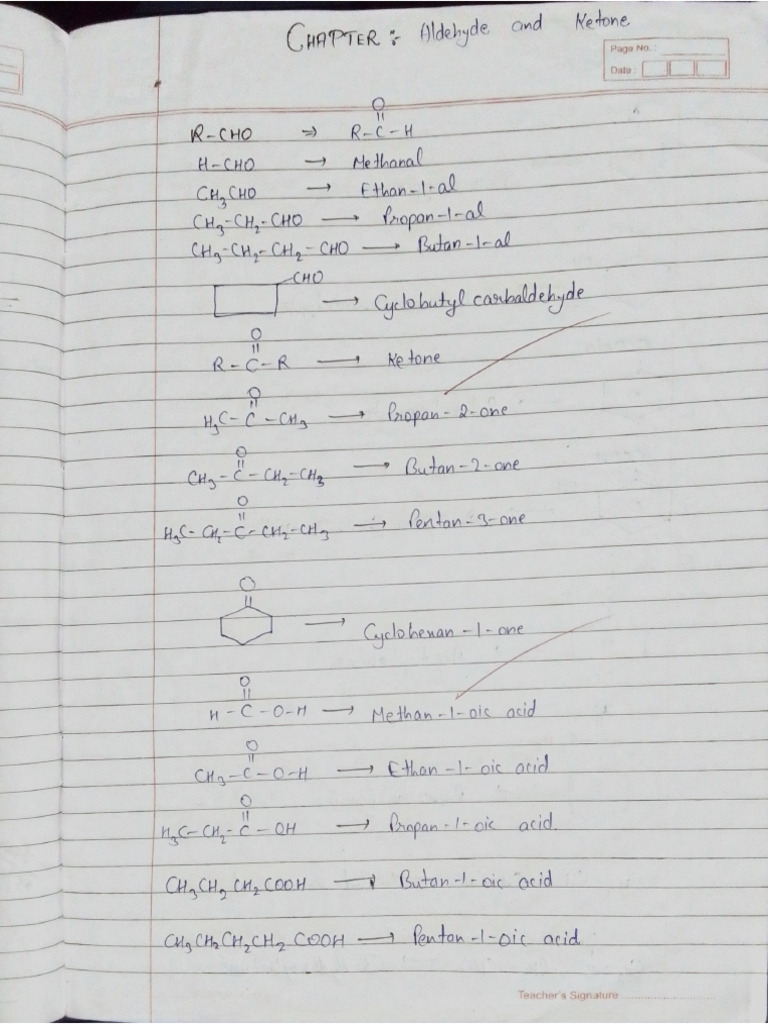 CHAPTER : Aldehyde and Ketone
Page No. :
Date :
O
R-CHO ⇒ R-C-H
H-CHO → Methanal
CH₃CHO → Ethan-1-al
CH₃-CH₂-CHO → Propan-1-al
CH₃-CH₂-CH₂-CHO → Butan-1-al
CHO
→ Cyclobutyl carbaldehyde
O
R-C-R → Ketone
O
H₃C-C-CH₃ → Propan-2-one
O
CH₃-C-CH₂-CH₃ → Butan-2-one
O
H₃C-CH₂-C-CH₂-CH₃ → Pentan-3-one
O
→ Cyclohexan-1-one
O
H-C-O-H → Methan-1-oic acid
O
CH₃-C-O-H → Ethan-1-oic acid
O
H₃C-CH₂-C-OH → Propan-1-oic acid.
CH₃CH₂CH₂COOH → Butan-1-oic acid
CH₃CH₂CH₂CH₂-COOH → Pentan-1-oic acid
Teacher's Signature